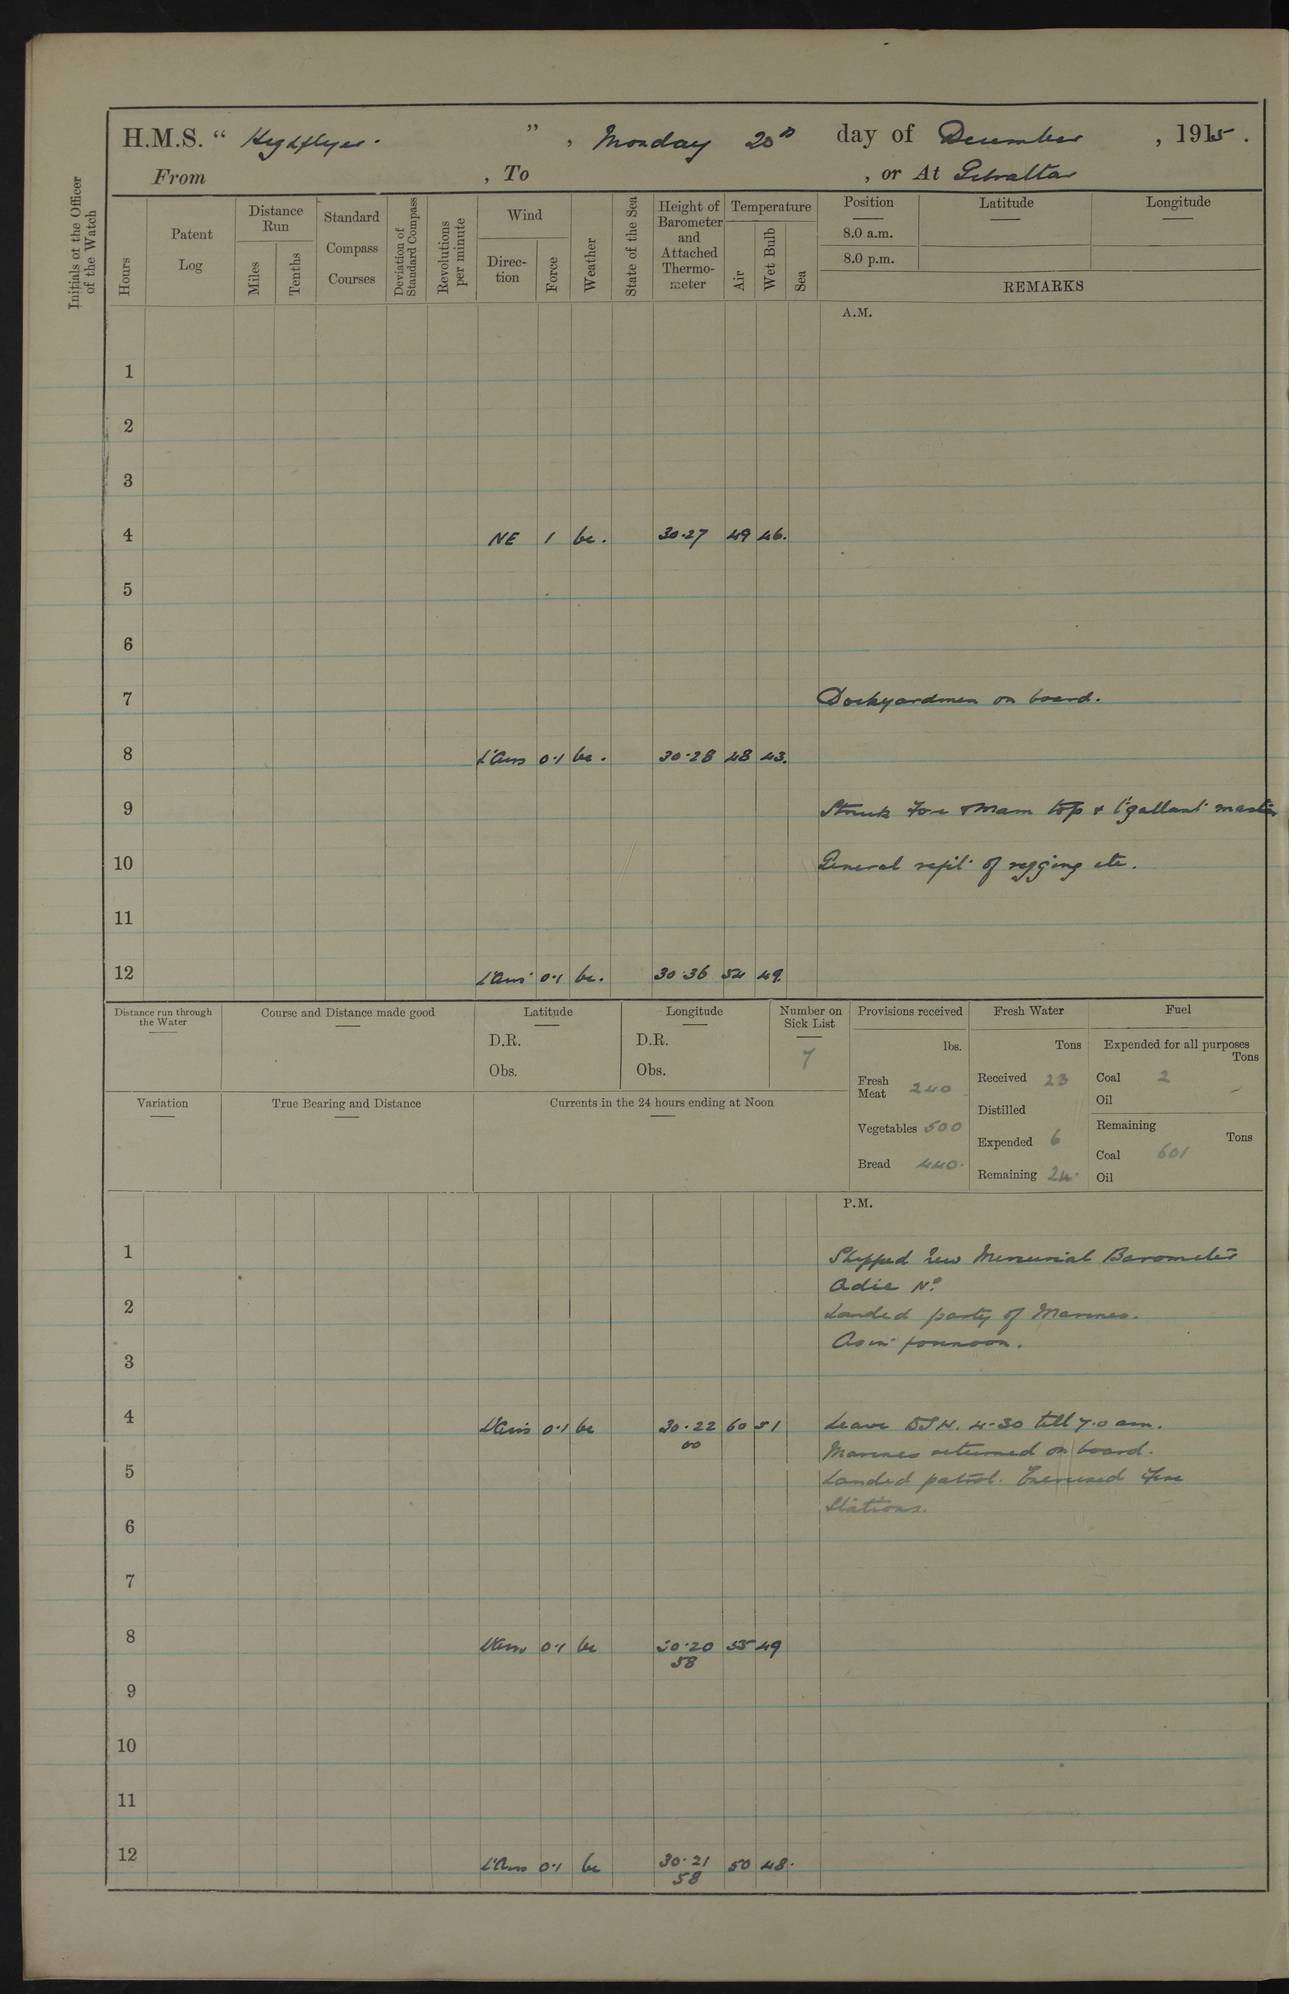 H.M.S. “ Highflyer. ” , Monday 20th day of December , 1915 .
From , To , or At Gibraltar
Initials of the Officer of the Watch
Hours
Patent Log
Distance Run
Miles
Tenths
Standard Compass Courses
Deviation of Standard Compass
Revolutions per minute
Wind
Direc-tion
Force
Weather
State of the Sea
Height of Barometer and Attached Thermo-meter
Temperature
Air
Wet Bulb
Sea
Position
8.0 a.m.
8.0 p.m.
Latitude
Longitude
REMARKS
A.M.
1
2
3
4 NE 1 bc. 30.27 49 46.
5
6
7 Dockyardmen on board.
8 L'Airs 0.1 bc. 30.28 48 43.
9 Struck Fore & Main top & t'gallant masts
10 General refit of rigging etc.
11
12 L'Airs 0.1 bc. 30.36 54 49.
Distance run through the Water
Course and Distance made good
Latitude
D.R.
Obs.
Longitude
D.R.
Obs.
Number on Sick List
7
Provisions received
lbs.
Fresh Meat 240
Vegetables 500
Bread 440.
Fresh Water
Tons
Received 23
Distilled
Expended 6
Remaining 24.
Fuel
Expended for all purposes
Tons
Coal 2
Oil -
Remaining
Tons
Coal 601
Oil
Variation
True Bearing and Distance
Currents in the 24 hours ending at Noon
P.M.
1 Shipped new Mercurial Barometer
Adie No
2 Landed party of Marines.
3 As in forenoon.
4 L'Airs 0.1 bc 30.22 60 51 Leave 4.30 till 7.0 am.
60
Marines returned on board.
5 Landed patrol. Exercised Fire
Stations.
6
7
8 L'Airs 0.1 bc 30.20 55 49
58
9
10
11
12 L'Airs 0.1 bc 30.21 50 48.
58